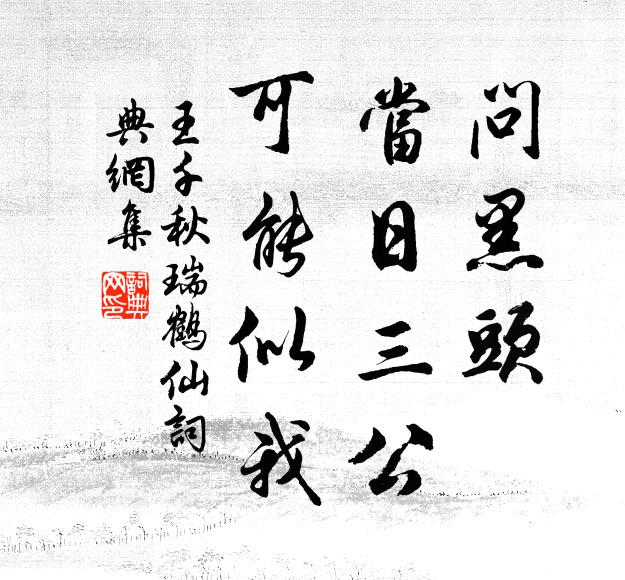 問黑頭
當日三公
可能似我
王千秋瑞鶴仙詞
典網集
詞典
网印